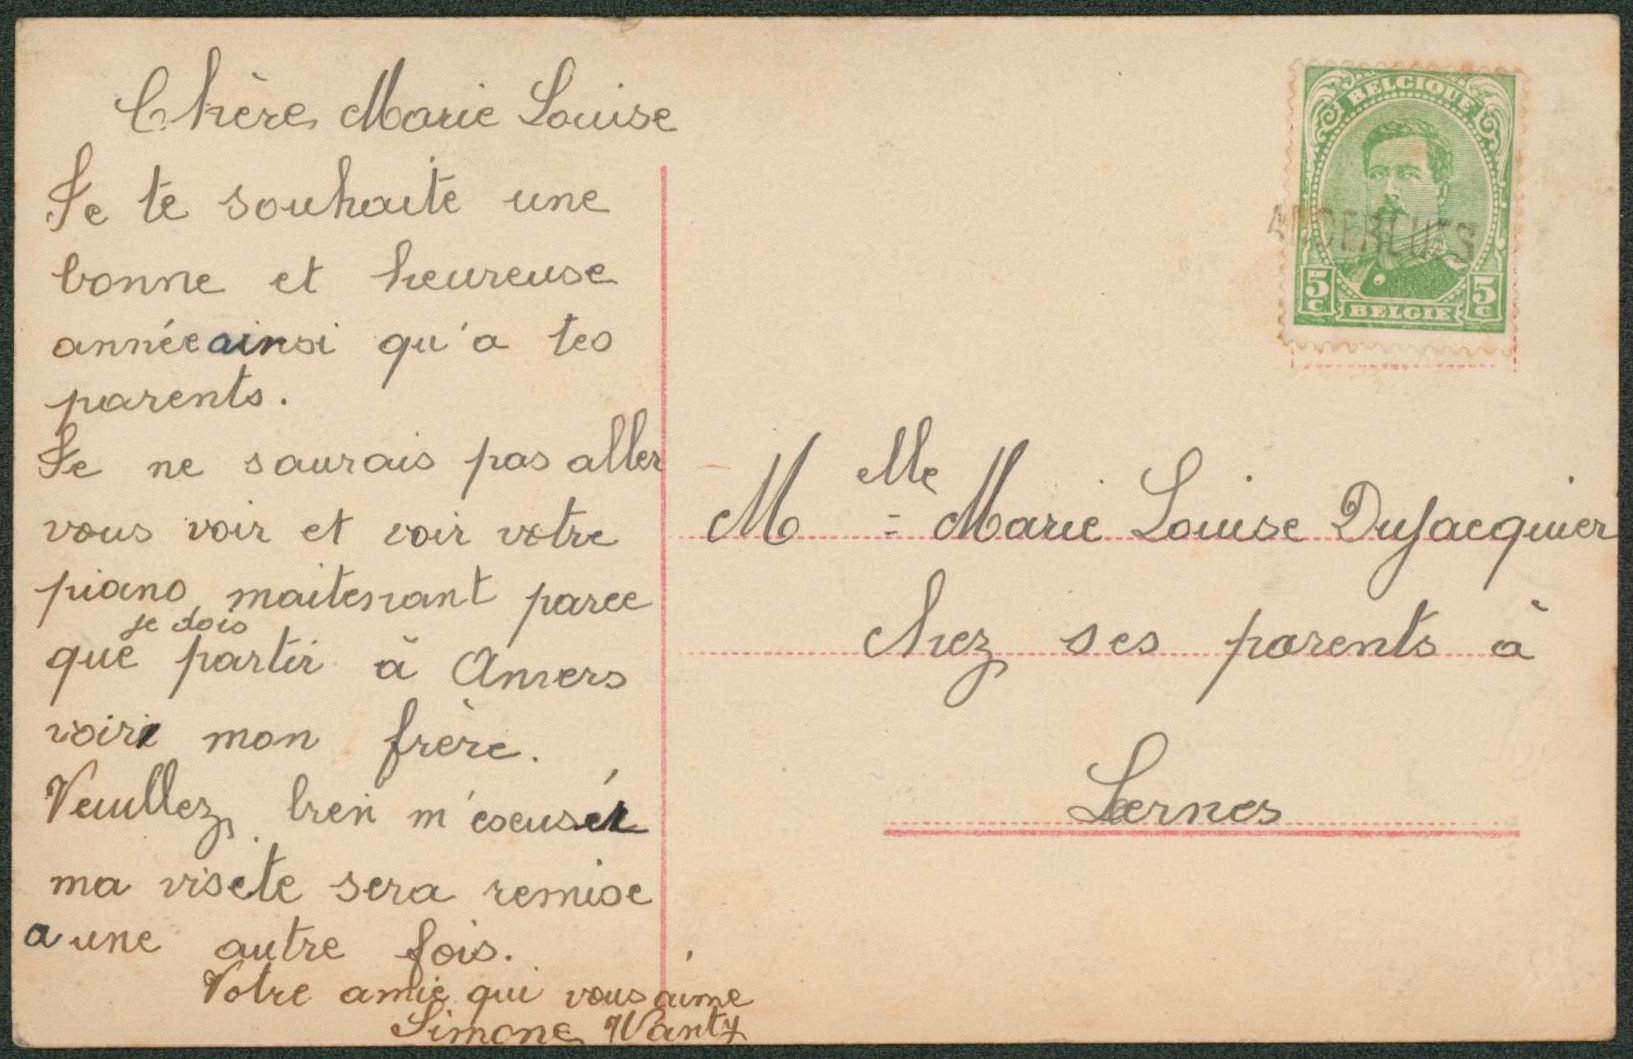 Chère Marie Louise
Je te souhaite une
bonne et heureuse
année ainsi qu'a tes
parents.
Je ne saurais pas aller
vous voir et voir votre
piano maitenant parce
je dois
que partir à Anvers
voir mon frère.
Veuillez bien m'escusér
ma visite sera remise
a une autre fois.
Votre amie qui vous aime
Simone Wanty
BELGIQUE
ANDERLUES
5c 5c
BELGIE
Melle = Marie Louise Dujacquier
chez ses parents à
Lernes